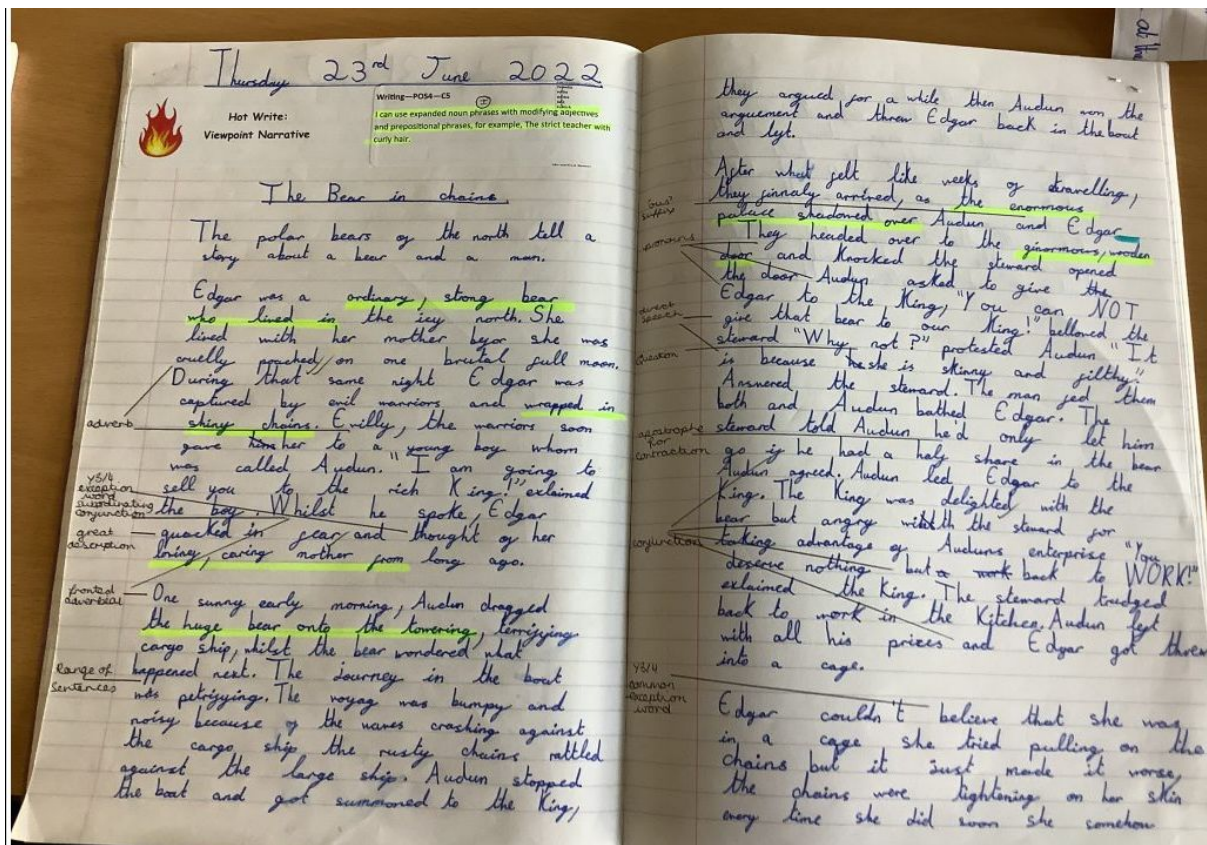 Thursday 23rd June 2022
Hot Write:
Viewpoint Narrative
Writing—POS4—C5
I can use expanded noun phrases with modifying adjectives
and prepositional phrases, for example, The strict teacher with
curly hair.
The Bear in chains.
The polar bears of the north tell a
story about a bear and a man.
Edgar was a ordinary, strong bear
who lived in the icy north. She
lived with her mother befor she was
cruelly poached on one brutal full moon.
During that same night Edgar was
captured by evil warriors and wrapped in
adverb
shiny chains. Evilly, the warriors soon
gave him her to a young boy whom
was called Audun. "I am going to
Y3/4
exception
word
sell you to the rich King!" exlaimed
subordinating
conjunction
the boy. Whilst he spoke, Edgar
great
description
quacked in fear and thought of her
loving, caring mother from long ago.
fronted
adverbial
One sunny early morning, Audun dragged
the huge bear onto the towering, terrifying
cargo ship, whilst the bear wondered what
Range of
sentences
happened next. The Journey in the boat
was petrifying. The voyag was bumpy and
noisy because of the waves crashing against
the cargo ship the rusty chains rattled
against the large ship. Audun stopped
the boat and got summoned to the King,
at the
they argued for a while then Audun won the
arguement and threw Edgar back in the boat
and left.
After what felt like weeks of travelling,
'ous'
suffix
they finnaly arrived, as the enormous
palace shadowed over Audun and Edgar
pronouns
They headed over to the ginormous, wooden
door and Knocked the steward opened
the door Audun asked to give the
Edgar to the King, "You can NOT
direct
speech
give that bear to our King!" belloed the
question
steward "Why not?" protested Audun "It
is because he she is skinny and filthy."
Answered the steward. The man fed them
both and Audun bathed Edgar. The
apostrophe
for
contraction
steward told Audun he'd only let him
go if he had a half share in the bear
Audun agreed. Audun led Edgar to the
King. The King was delighted with the
bear but angry with the steward for
conjunction
taking advantage of Auduns enterprise "You
deserve nothing but a work back to WORK!"
exlaimed the King. The steward trudged
back to work in the Kitchen. Audun left
with all his prices and Edgar got threw
into a cage.
Y3/4
common
exception
word
Edgar couldn't believe that she was
in a cage she tried pulling on the
chains but it Just made it worse,
the chains were tightening on her skin
every time she did soon she somehow